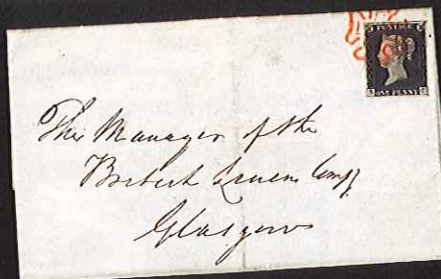 POSTAGE
ONE PENNY
The Manager of the
British Linen Compy
Glasgow